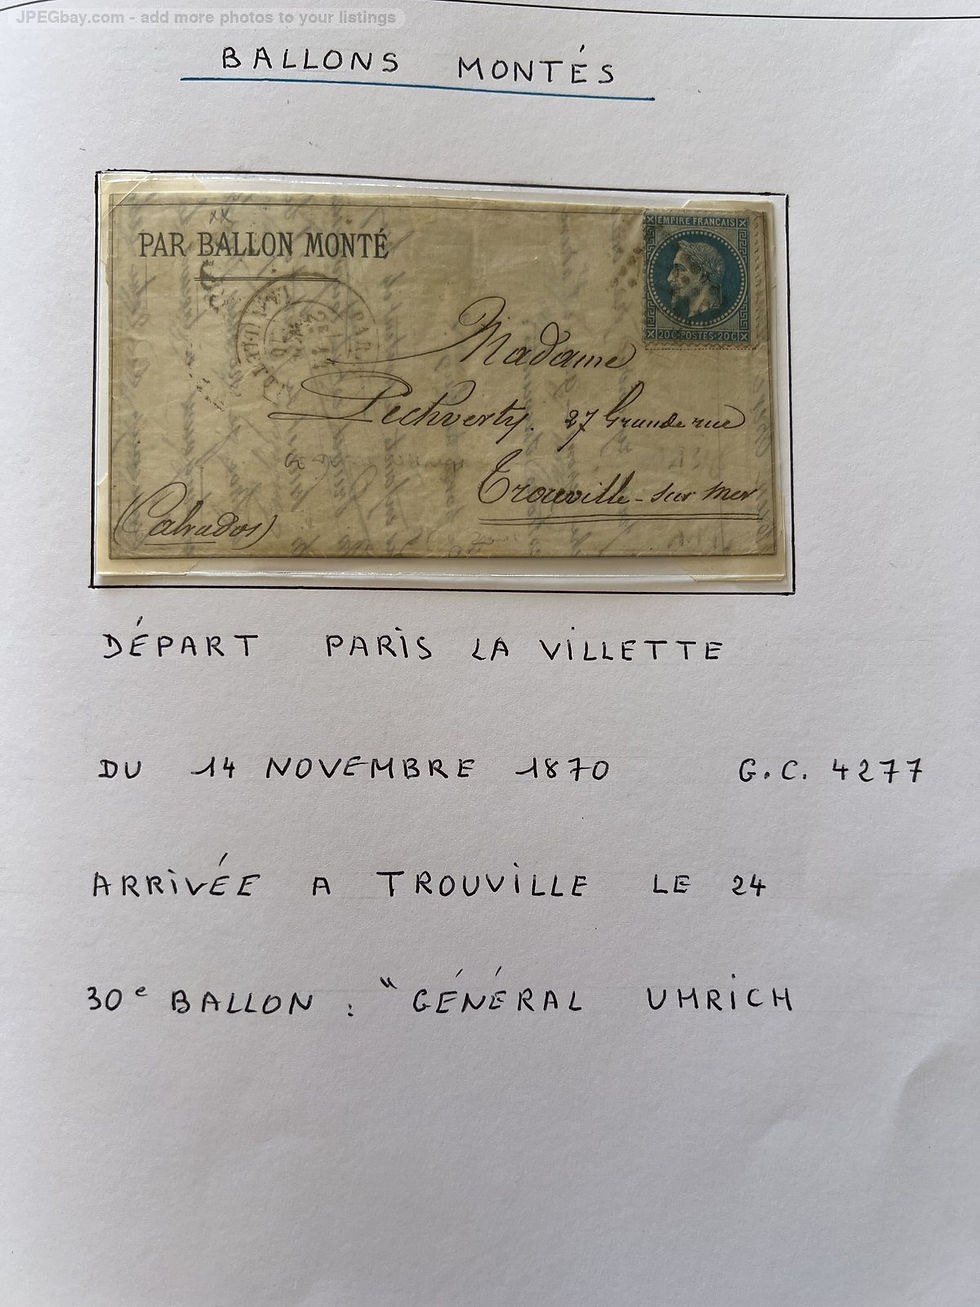 JPEGbay.com - add more photos to your listings
BALLONS MONTÉS
PAR BALLON MONTÉ
EMPIRE FRANCAIS
20C·POSTES·20C
Madame
Pechverty. 27 Grande rue
Trouville-sur mer
(Calvados)
DÉPART PARIS LA VILLETTE
DU 14 NOVEMBRE 1870 G.C. 4277
ARRIVÉE A TROUVILLE LE 24
30e BALLON : "GÉNÉRAL UHRICH